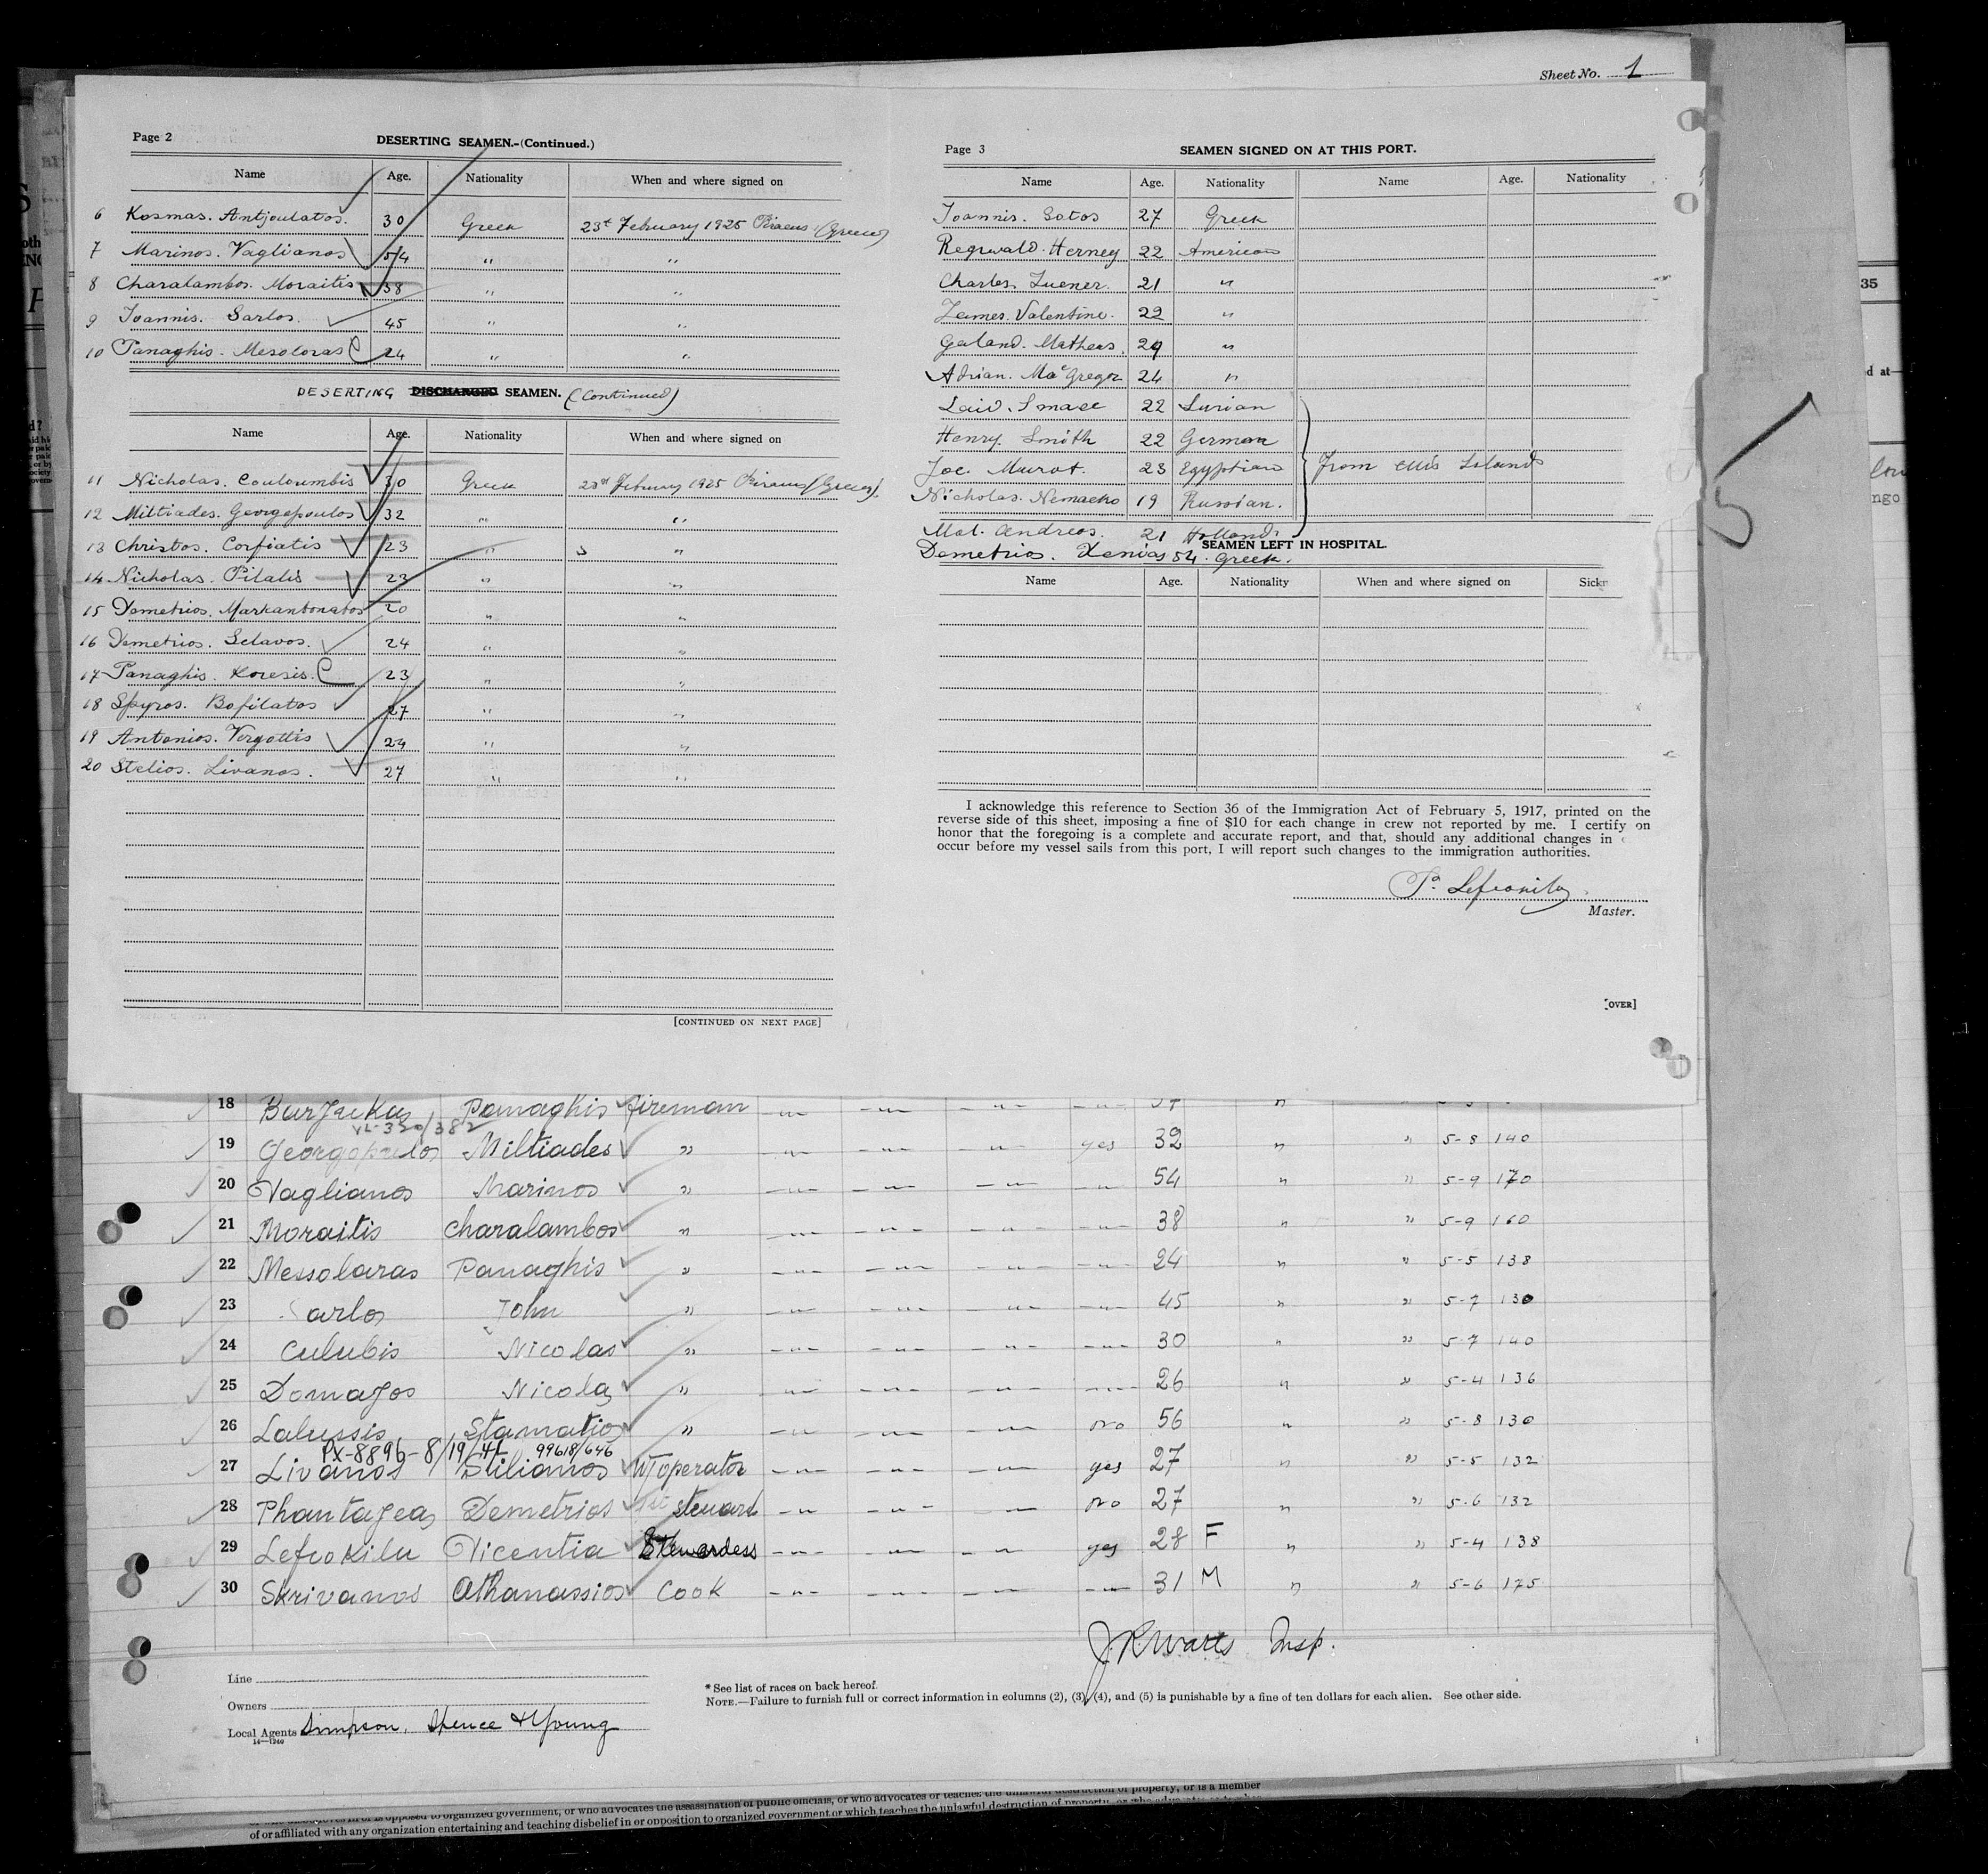 Sheet No. 1
Page 2
DESERTING SEAMEN.-(Continued.)
Name Age. Nationality When and where signed on
6 Kosmas. Antjoulatos. 30 Greek 23rd February 1925 Piraeus (Greece)
7 Marinos. Vaglianos 54 " "
8 Charalambos. Moraitis 38 " "
9 Ioannis. Sarlos. 45 " "
10 Panaghis. Mesoloras 24 " "
DESERTING DISCHARGED SEAMEN. (Continued)
Name Age. Nationality When and where signed on
11 Nicholas. Couloumbis 30 Greek 23rd February 1925 Piraeus (Greece).
12 Miltiades. Georgopoulos 32 " "
13 Christos. Corfiatis 23 " "
14 Nicholas. Pilalis 23 " "
15 Demetrios. Markantonatos 20 " "
16 Demetrios. Sclavos. 24 " "
17 Panaghis. Koresis. 23 " "
18 Spyros. Bofilatos 27 " "
19 Antonios. Vergottis 24 " "
20 Stelios. Livanos. 27 " "
[CONTINUED ON NEXT PAGE]
Page 3
SEAMEN SIGNED ON AT THIS PORT.
Name Age. Nationality Name Age. Nationality
Ioannis. Sotos 27 Greek
Reginald. Herney 22 American
Charles. Tuener. 21 "
James. Valentine. 22 "
Galand. Mathews. 29 "
Adrian. Mac Gregor 24 "
Laid. Smael 22 Surian
Henry. Smith 22 German
Joe. Murat. 23 Egyptian From Ellis Island
Nicholas. Nemaeko 19 Russian.
Mat. Andreos. 21 Holland
SEAMEN LEFT IN HOSPITAL.
Demetrios. Xenios 54. Greek.
Name Age. Nationality When and where signed on
I acknowledge this reference to Section 36 of the Immigration Act of February 5, 1917, printed on the
reverse side of this sheet, imposing a fine of $10 for each change in crew not reported by me. I certify on
honor that the foregoing is a complete and accurate report, and that, should any additional changes in
occur before my vessel sails from this port, I will report such changes to the immigration authorities.
Master.
[OVER]
35
d at
18 Panaghis fireman
VL-320/382
19 Georgopoulos Miltiades " yes 32 " " 5-8 140
20 Vaglianos Marinos " 54 " " 5-9 170
21 Moraitis Charalambos " 38 " " 5-9 160
22 Messolaras Panaghis " 24 " " 5-5 138
23 Sarlos John " 45 " " 5-7 130
24 Culubis Nicolas " 30 " " 5-7 140
25 Domazos Nicolas " 26 " " 5-4 136
26 Lalussis Stamatios " no 56 " " 5-8 130
PX-8896-8/19/41 99618/646
27 Livanos Stilianos W/operator yes 27 " " 5-5 132
28 Phantazeas Demetrios steward no 27 " " 5-6 132
29 Lefcokilu Vicentia Stewardess yes 28 F " " 5-4 138
30 Skrivanos Athanassios Cook 31 M " " 5-6 175
Insp.
Line
Owners
Local Agents Simpson, Spence & Young
14—1240
* See list of races on back hereof.
NOTE.—Failure to furnish full or correct information in columns (2), (3), (4), and (5) is punishable by a fine of ten dollars for each alien. See other side.
of or affiliated with any organization entertaining and teaching disbelief in or opposition to organized government or which teaches the unlawful destruction of property, or